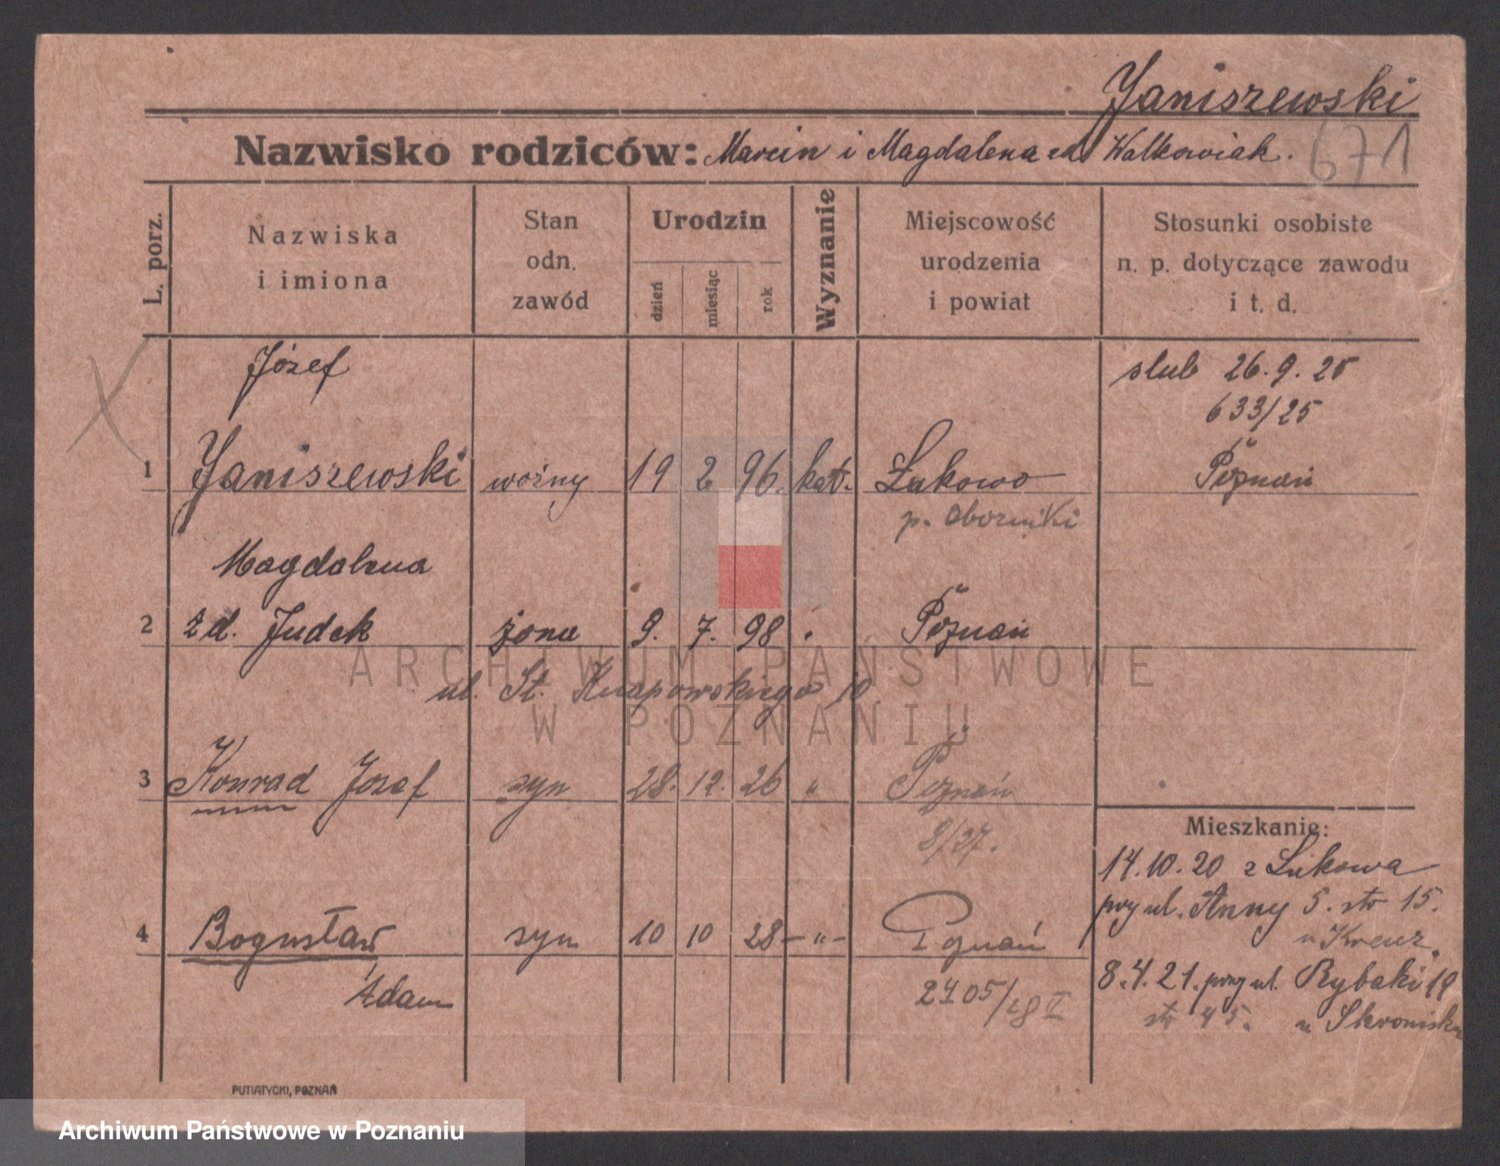 Janiszewski
Nazwisko rodziców: Marcin i Magdalena Walkowiak.
671
L. porz.
Nazwiska
i imiona
Stan
odn.
zawód
Urodzin
dzień
miesiąc
rok
Wyznanie
Miejscowość
urodzenia
i powiat
Stosunki osobiste
n. p. dotyczące zawodu
i t. d.
Józef
1 Janiszewski woźny 19 2 96. kat. Łukowo
p. Oborniki
slub 26.9.25
633/25
Poznań
Magdalena
2 z d. Judek żona 9. 7. 98 " Poznań
ul. St. Knapowskiego 10
3 Konrad Jozef syn 28. 12. 26 " Poznań
8/37.
4 Bogusław syn 10 10 28 -"- Poznań
Adam
2405/28 V
Mieszkanie:
14.10.20 z Łukowa
przy ul. Anny 5. str 15.
u Kreuz.
8.4.21. przy ul. Rybaki 19
str 45. u
PUTIATYCKI, POZNAŃ
ARCHIWUM PAŃSTWOWE
W POZNANIU
Archiwum Państwowe w Poznaniu